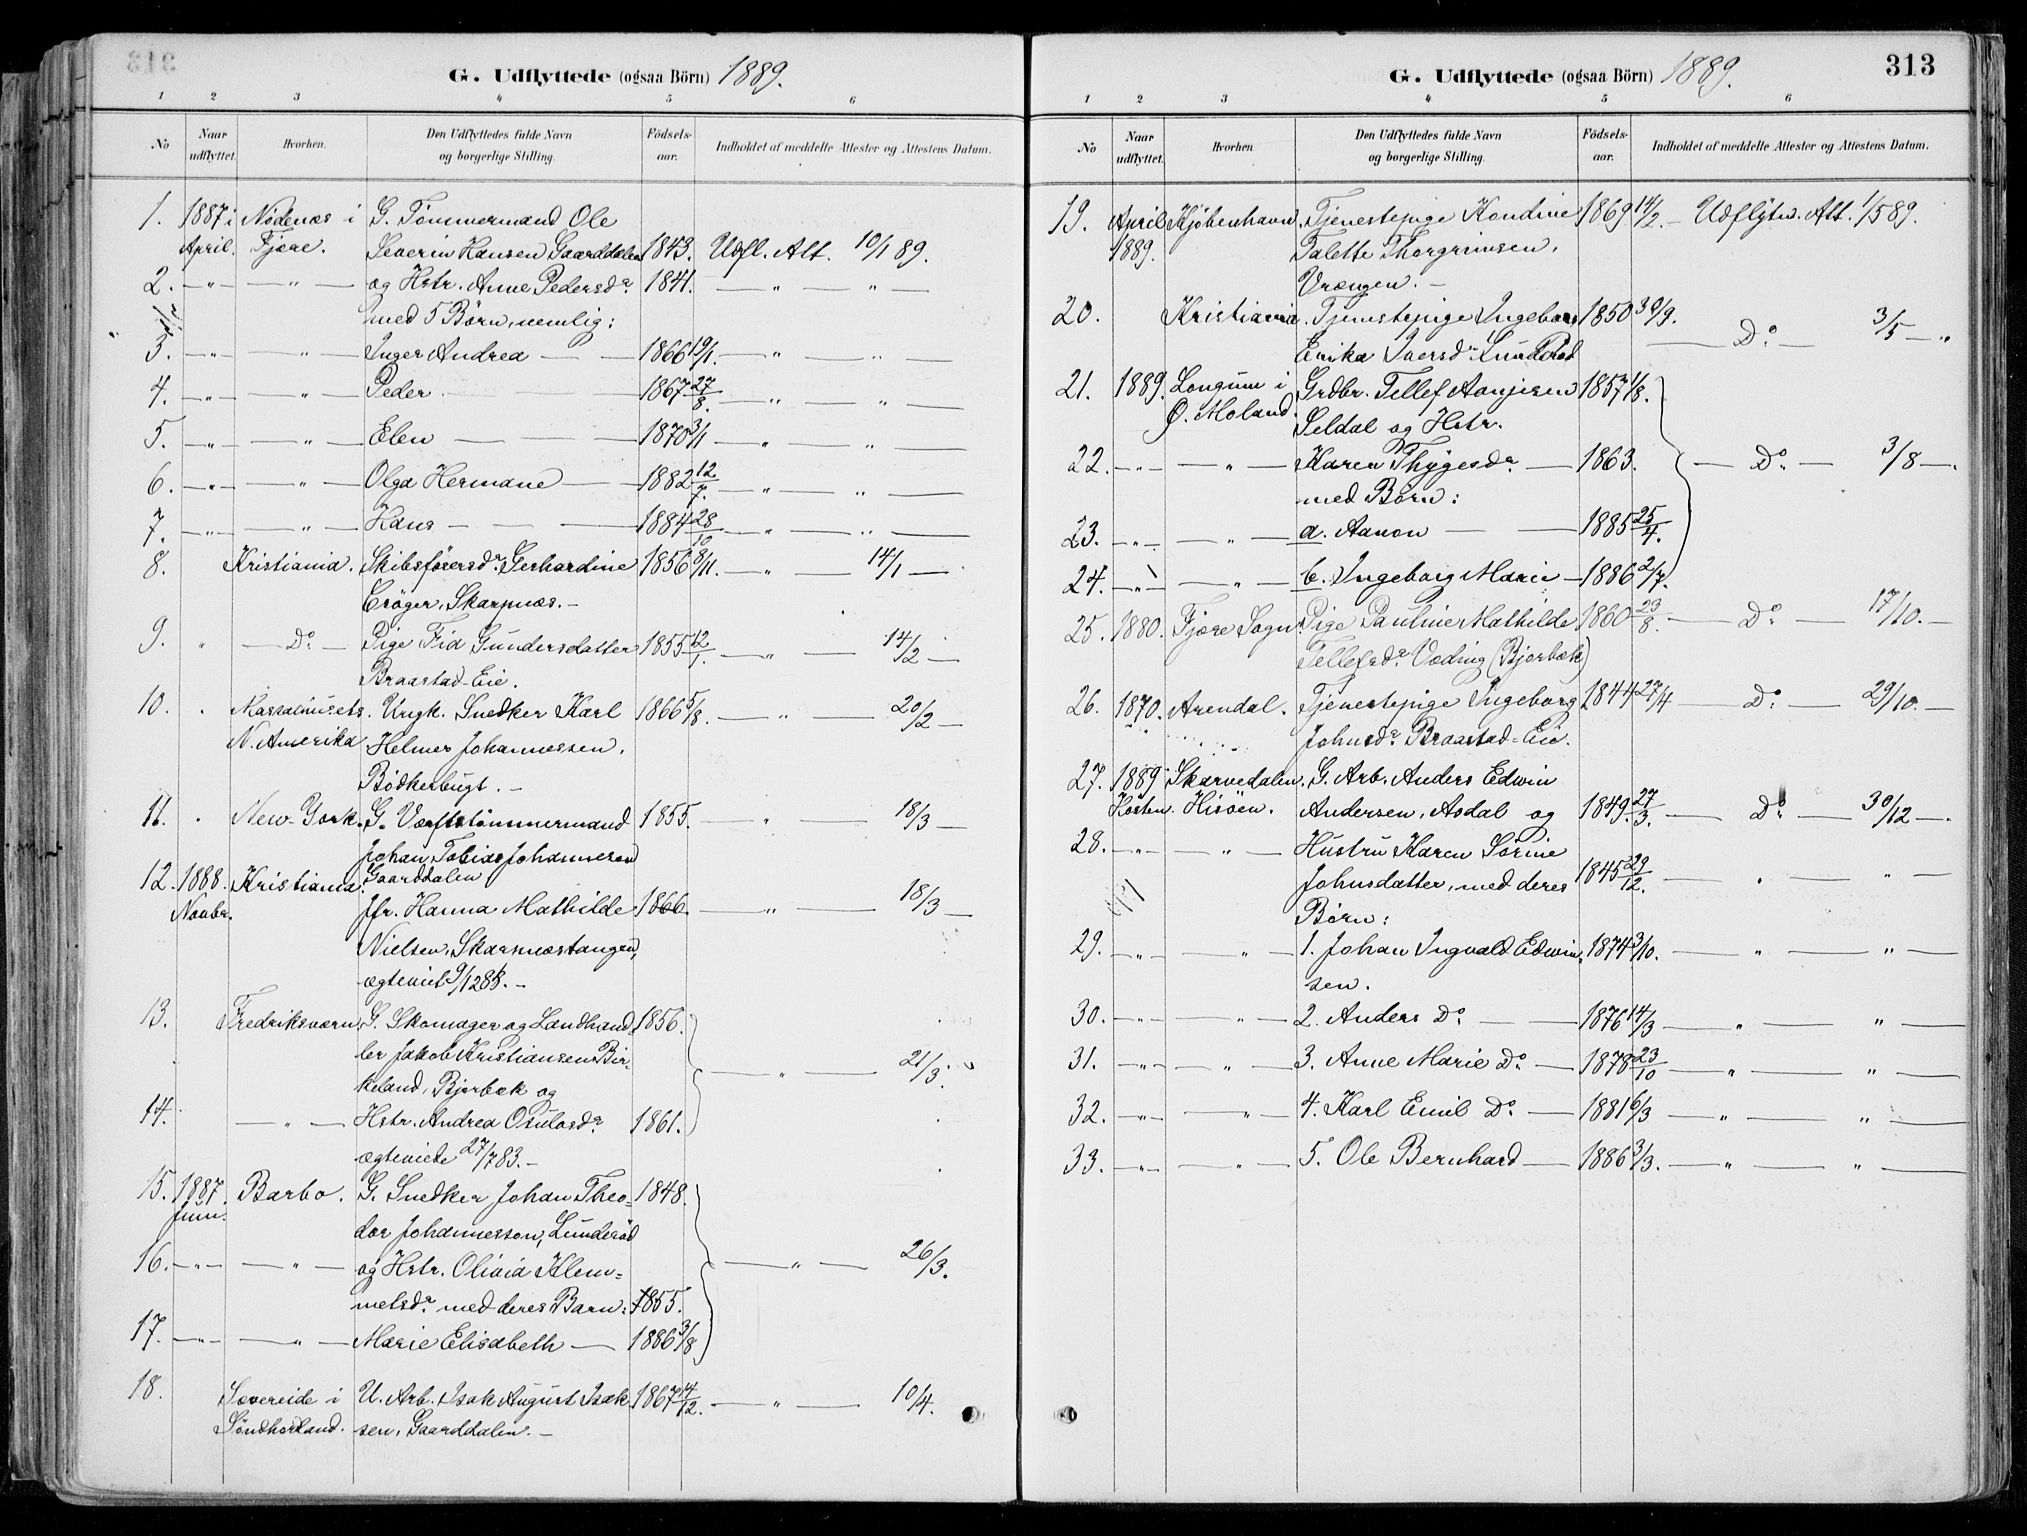 G. Udflyttede (ogsaa Börn) 1889.
1 2 3 4 5 6
No Naar udflyttet. Hvorhen. Den Udflyttedes fulde Navn og borgerlige Stilling. Födsels-aar. Indholdet af meddelte Attester og Attestens Datum.
1. 1887 i Nödenæs i G. Tömmermand Ole
April. Fjære. Severin Hansen Gaarddalen 1843. Udfl. Att. 10/1 89.
2. -"- -"- og Hstr. Anne Pedersd. 1841. -"- "
med 5 Börn, nemlig:
3. -"- -"- Inger Andrea 1866 -"- "
4. -"- -"- Peder 1867 27/8. -"- "
5. -"- -"- Elen 1870 3/1 -"- "
6. -"- -"- Olga Hermane 1882 12/7. -"- "
7. -"- -"- Hans 1884 28/10 -"- "
8. Kristiania. Skibsförersd. Gerhardine 1856 8/11. -"- 14/1
Cröger, Skarpnæs.
9. " Do Pige Fia Gundersdatter 1855 12/1. -"- 14/2
Braastad-Eie.
10. " Massachusets. Ungk. Snedker Karl 1866 5/8. -"- 20/2
N. Amerika Helmer Johannessen,
Bödkerbugt.
11. " New-York. G. Værftstömmermand 1855. -"- 18/3
Johan Tobias Johannesen
Gaarddalen
12. 1888. Kristiania. Jfr. Hanna Mathilde 1866. -"- 18/3
Novbr. Nielsen, Skarpnæstangen,
ægteviet 9/12 88.
13. Fredriksværn. G. Skomager og Landhand- 1856.
ler Jakob Kristiansen Bir- -"- 21/3.
keland, Bjorbæk og
14. -"- Hstr. Andrea Osulosd. 1861.
ægteviede 27/7 83.
15. 1887. Barbo. G. Snedker Johan Theo- 1848.
Juni. dor Johannesson, Lunderöd
16. -"- -"- og Hstr. Olivia Klem- -"- 26/3.
metsd. med deres Barn: 1855.
17. -"- -"- Marie Elisabeth 1886 3/8
18. Sævereide i U. Arb. Isak August Isak- 1867 14/12. -"- 10/4.
Söndhorland. sen, Gaarddalen.
G. Udflyttede (ogsaa Börn) 1889. 313
1 2 3 4 5 6
No Naar udflyttet. Hvorhen. Den Udflyttedes fulde Navn og borgerlige Stilling. Födsels-aar. Indholdet af meddelte Attester og Attestens Datum.
19. April Kjöbenhavn. Tjenestepige Kondine 1869 14/2. Udflytn. Att. 1/5 89.
1889. Talette Thorgrimsen,
Vrængen.
20. Kristiania. Tjenestepige Ingeborg 1850 30/9. Do 3/5 "
Erika Iversd. Lunderöd
21. 1889. Longum i Grdbr. Tellef Aanjesen 1857 1/8.
Ö. Moland. Seldal og Hstr.
22. -"- -"- Karen Thygesd. 1863. Do 3/8
med Börn:
23. -"- -"- a. Aanon 1885 25/4.
24. -"- -"- b. Ingeborg Marie 1886 2/7.
25. 1880. Fjære Sogn. Pige Pauline Mathilde 1860 23/8. Do 17/10.
Tellefsd. Vading (Bjorbæk)
26. 1870. Arendal. Tjenestepige Ingeborg 1844 27/4 Do 29/10.
Johnsd. Braastad-Eie.
27. 1889 Skarvedalen. G. Arb. Anders Edwin
Hösten. Hisöen. Andersen, Asdal og 1849. 27/3. Do 30/12
28. -"- -"- Hustru Karen Sörine
Johnsdatter, med deres 1845 29/12. " "
Börn:
29. -"- " 1. Johan Ingvald Edwin- 1874 3/10. " "
sen.
30. -"- -"- 2. Anders Do 1876 14/3 " "
31. -"- -"- 3. Anne Marie Do 1878 23/10 " "
32. -"- -"- 4. Karl Emil Do 1881 6/3 " "
33. -"- " 5. Ole Bernhard 1886 3/3. " "